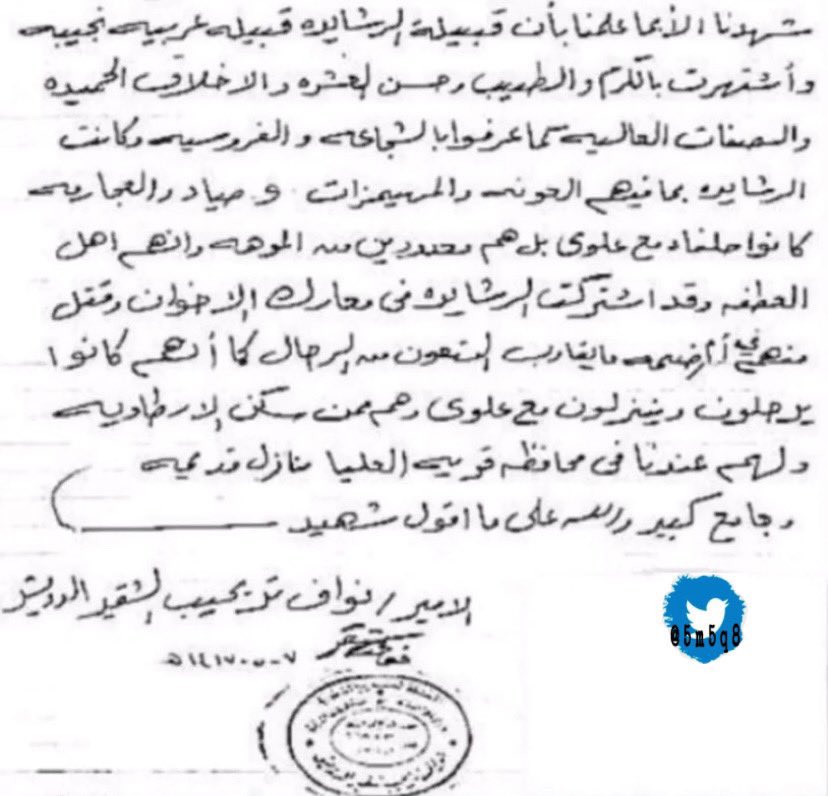 شهدنا الأبما علمنا بأن قبيلة الرشايده قبيله عربيه نجيبه
وأشتهرت بالكرم والطيب وحسن العشره والاخلاق الحميده
والصفات العاليه كما عرفوا بالشجاعه والفروسيه وكانت
الرشايده بما فيهم العونه والمهيمزات و صياد والعجاريه
كانوا حلفاء مع علوى بل هم معدودين من الموهه وانهم اهل
العطفه وقد اشتركت الرشايده فى معارك الاخوان وقتل
منهم في أم رضمه مايقارب التسعون من الرجال كما أنهم كانوا
يرحلون وينزلون مع علوى وهم ممن سكن الارطاويه
ولهم عندنا فى محافظه قريه العليا منازل قديمه
وجامع كبير والله على ما اقول شهيد
الامير / نواف تريحيب الشقير الدويش
٧-٥-١٤١٧ه
@5m5q8